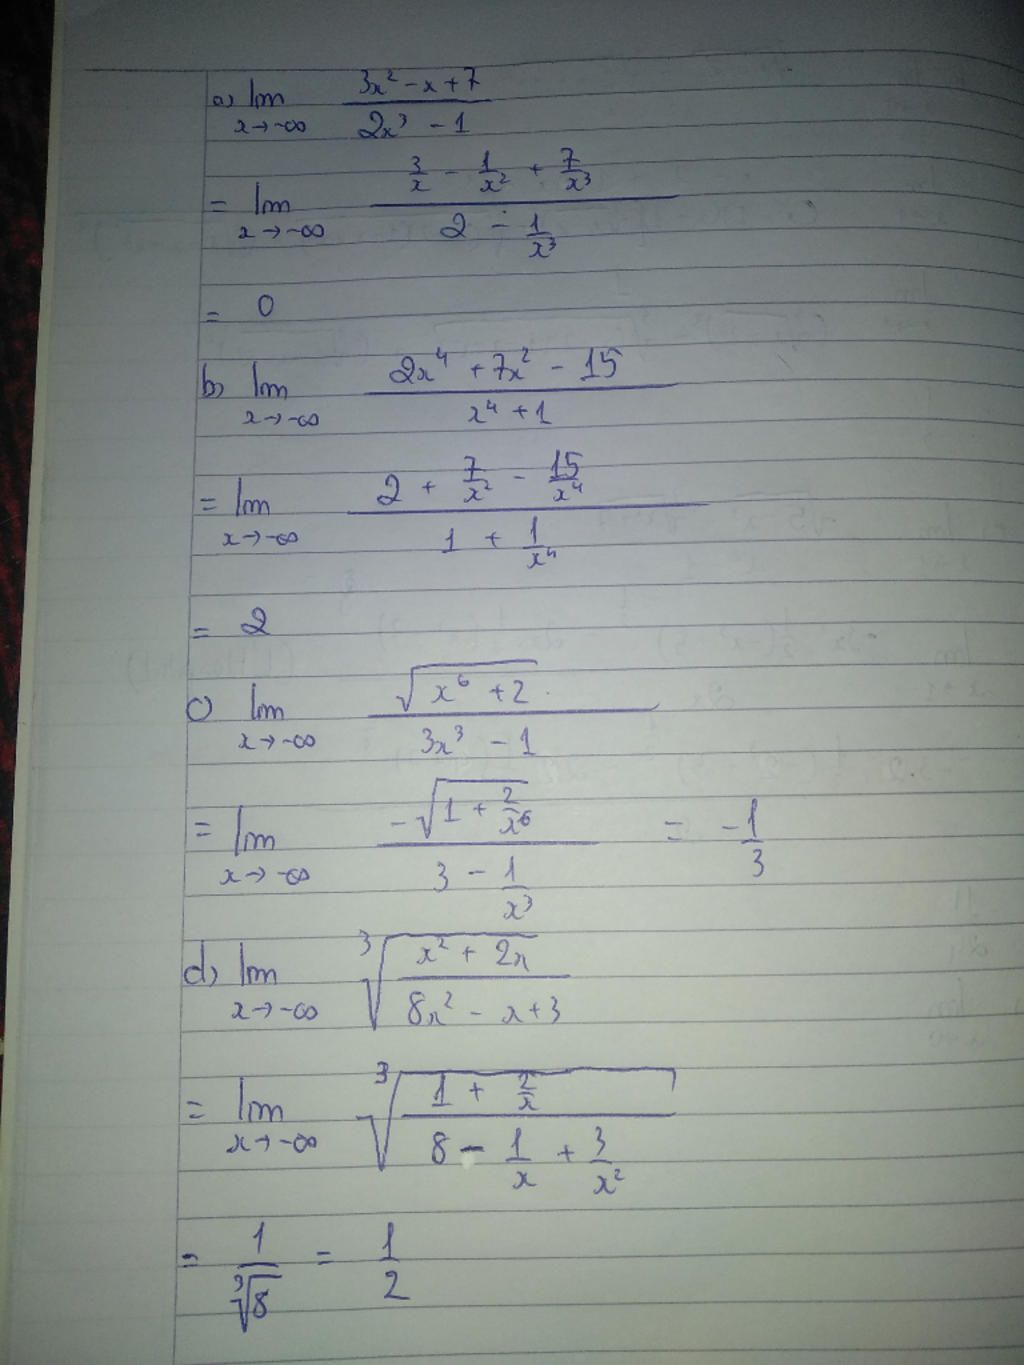 a) lim x→-∞ (3x² - x + 7)/(2x³ - 1)
= lim x→-∞ (3/x - 1/x² + 7/x³)/(2 - 1/x³)
= 0
b) lim x→-∞ (2x⁴ + 7x² - 15)/(x⁴ + 1)
= lim x→-∞ (2 + 7/x² - 15/x⁴)/(1 + 1/x⁴)
= 2
c) lim x→-∞ √(x⁶ + 2)/(3x³ - 1)
= lim x→-∞ -√(1 + 2/x⁶)/(3 - 1/x³) = -1/3
d) lim x→-∞ ∛((x² + 2x)/(8x² - x + 3))
= lim x→-∞ ∛((1 + 2/x)/(8 - 1/x + 3/x²))
= 1/∛8 = 1/2